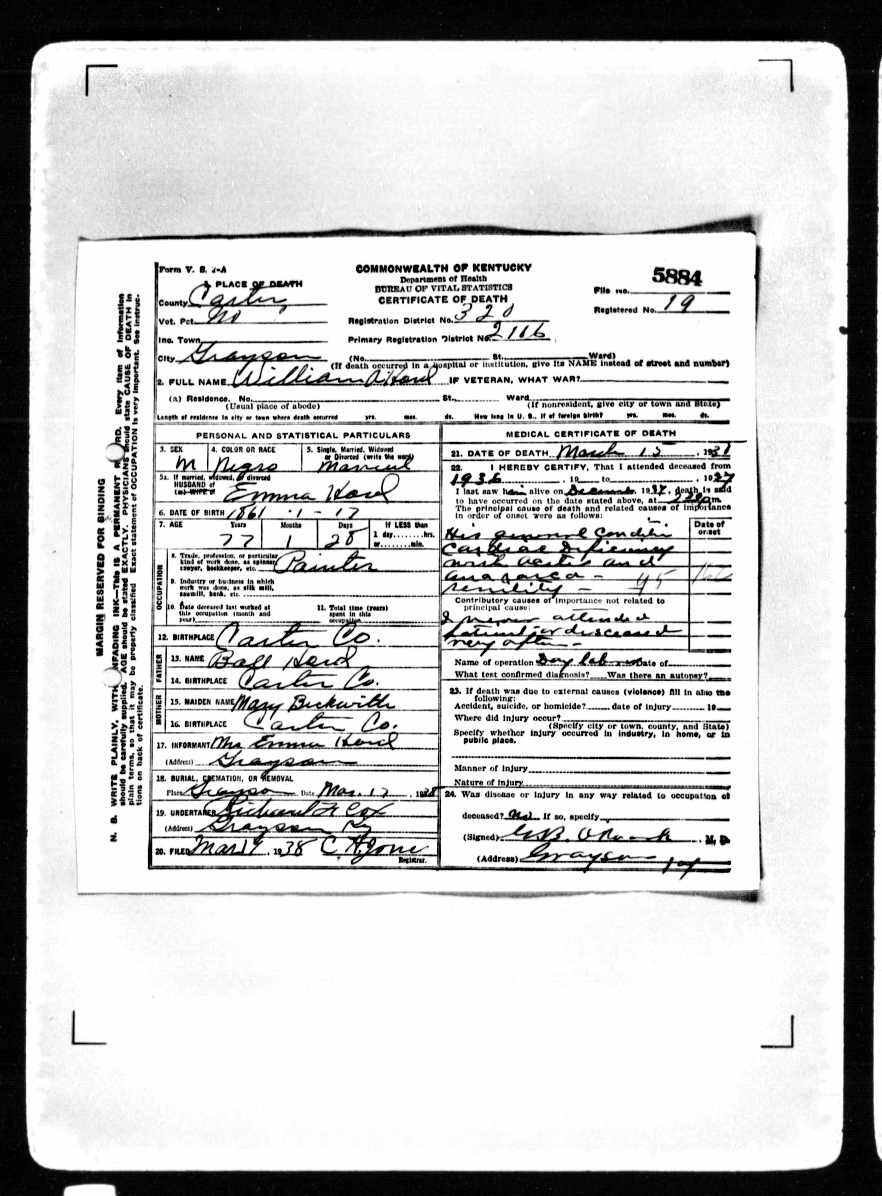 Form V. S. 1-A
COMMONWEALTH OF KENTUCKY
Department of Health
BUREAU OF VITAL STATISTICS
CERTIFICATE OF DEATH
File No. 5884
Registered No. 19
1. PLACE OF DEATH
County Carter
Vot. Pct. No
Registration District No. 320
Inc. Town
Primary Registration District No. 2116
City Grayson (No. St. Ward)
(If death occurred in a hospital or institution, give its NAME instead of street and number)
2. FULL NAME William A Hord IF VETERAN, WHAT WAR?
(a) Residence. No. St., Ward
(Usual place of abode) (If nonresident, give city or town and State)
Length of residence in city or town where death occurred yrs. mos. ds. How long in U. S., if of foreign birth? yrs. mos. ds.
PERSONAL AND STATISTICAL PARTICULARS
3. SEX 4. COLOR OR RACE 5. Single, Married, Widowed
or Divorced (write the word)
M Negro Married
5a. If married, widowed, or divorced
HUSBAND of
(or) WIFE of Emma Hord
6. DATE OF BIRTH 1861 - 1 - 17
7. AGE Years Months Days If LESS than
1 day, hrs.
or min.
77 1 28
OCCUPATION
8. Trade, profession, or particular
kind of work done, as spinner,
sawyer, bookkeeper, etc. Painter
9. Industry or business in which
work was done, as silk mill,
sawmill, bank, etc.
10. Date deceased last worked at
this occupation (month and
year)
11. Total time (years)
spent in this
occupation
12. BIRTHPLACE Carter Co.
FATHER
13. NAME Ball Hord
14. BIRTHPLACE Carter Co.
MOTHER
15. MAIDEN NAME Mary Beckwith
16. BIRTHPLACE Carter Co.
17. INFORMANT Mrs Emma Hord
(Address) Grayson
18. BURIAL, CREMATION, OR REMOVAL
Place Grayson Date Mar. 17, 1938
19. UNDERTAKER Richard Cox
(Address) Grayson Ky
20. FILED Mar 17, 1938 C. H. Jone
Registrar.
MEDICAL CERTIFICATE OF DEATH
21. DATE OF DEATH March 15, 1938
22. I HEREBY CERTIFY, That I attended deceased from
1936, 19 to 1937
I last saw him alive on December 1937, death is said
to have occurred on the date stated above, at m.
The principal cause of death and related causes of importance
in order of onset were as follows:
Date of
onset
His general condition
Cardiac Deficiency
with and
anasarca -
senility -
Contributory causes of importance not related to
principal cause:
I never attended
patient deceased
very often -
Name of operation Date of
What test confirmed diagnosis? Was there an autopsy?
23. If death was due to external causes (violence) fill in also the
following:
Accident, suicide, or homicide? date of injury 19
Where did injury occur?
(Specify city or town, county, and State)
Specify whether injury occurred in industry, in home, or in
public place.
Manner of injury
Nature of injury
24. Was disease or injury in any way related to occupation of
deceased? No If so, specify
(Signed) M. D.
(Address) Grayson Ky
MARGIN RESERVED FOR BINDING
N. B. WRITE PLAINLY, WITH UNFADING INK—THIS IS A PERMANENT RECORD. Every item of information
should be carefully supplied. AGE should be stated EXACTLY. PHYSICIANS should state CAUSE OF DEATH in
plain terms, so that it may be properly classified. Exact statement of OCCUPATION is very important. See instruc-
tions on back of certificate.